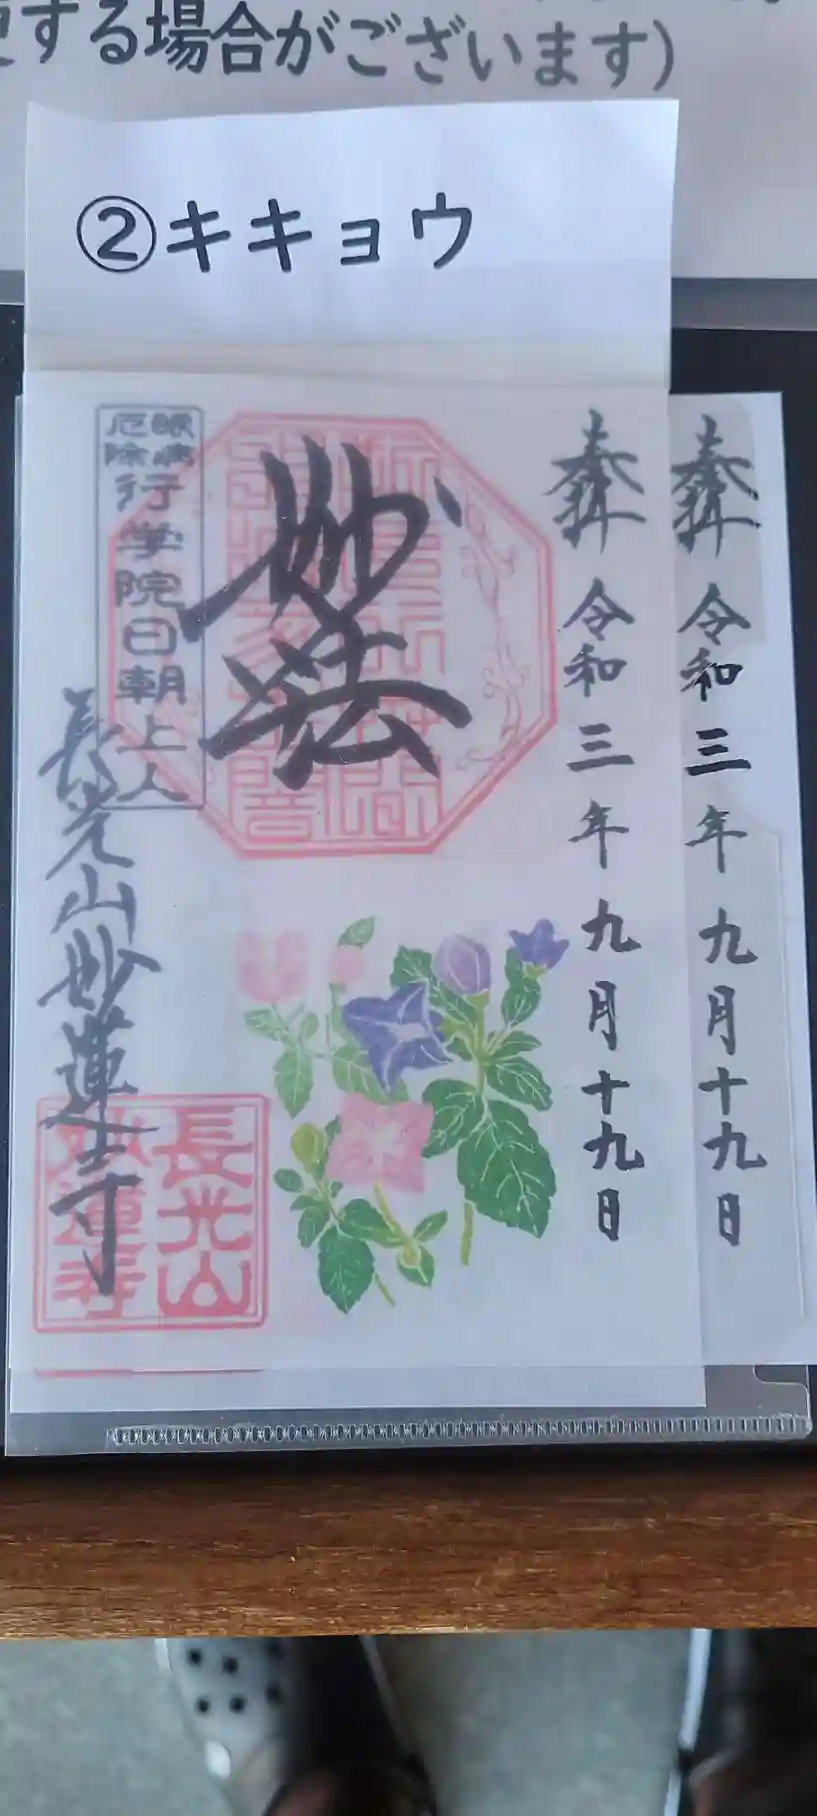 する場合がございます）
②キキョウ
奉拝
令和三年九月十九日
奉拝
令和三年九月十九日
妙法
眼病
厄除
行学院日朝上人
長光山妙蓮寺
長光山
妙蓮寺